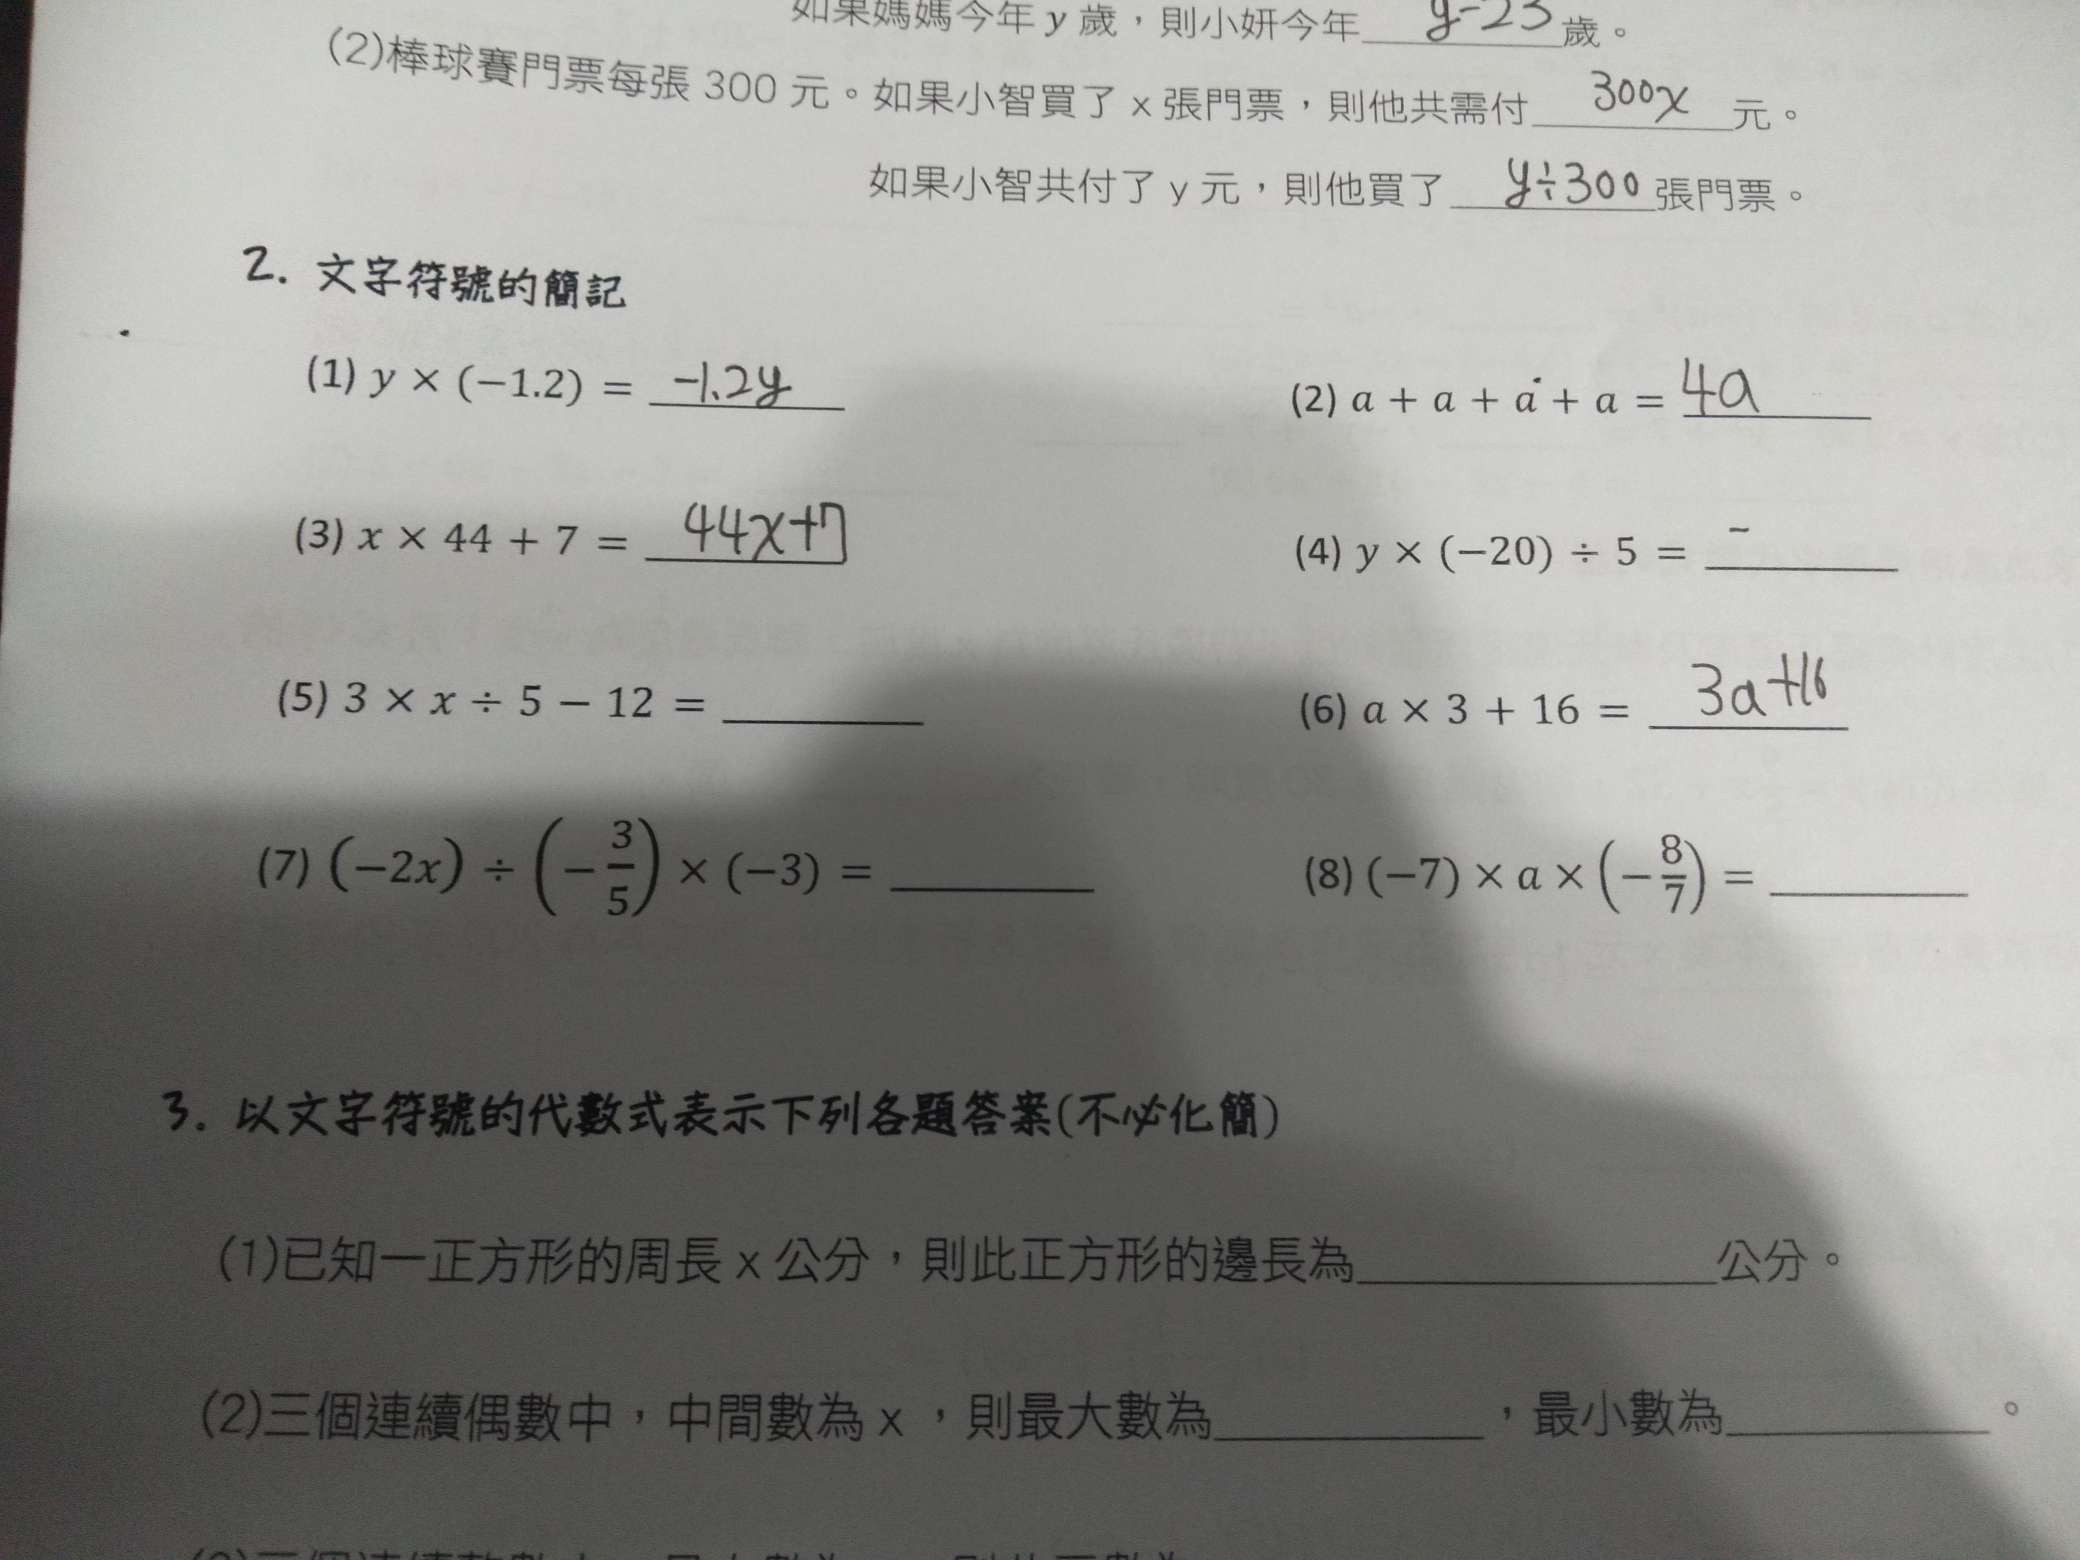 如果媽媽今年 y 歲，則小妍今年 y-23 歲。
(2)棒球賽門票每張 300 元。如果小智買了 x 張門票，則他共需付 300x 元。
如果小智共付了 y 元，則他買了 y÷300 張門票。
2. 文字符號的簡記
(1) y × (−1.2) = -1.2y (2) a + a + a + a = 4a
(3) x × 44 + 7 = 44x+7 (4) y × (−20) ÷ 5 = -
(5) 3 × x ÷ 5 − 12 = ______ (6) a × 3 + 16 = 3a+16
(7) (−2x) ÷ (−3/5) × (−3) = ______ (8) (−7) × a × (−8/7) = ______
3. 以文字符號的代數式表示下列各題答案(不必化簡)
(1)已知一正方形的周長 x 公分，則此正方形的邊長為______公分。
(2)三個連續偶數中，中間數為 x ，則最大數為______，最小數為______。